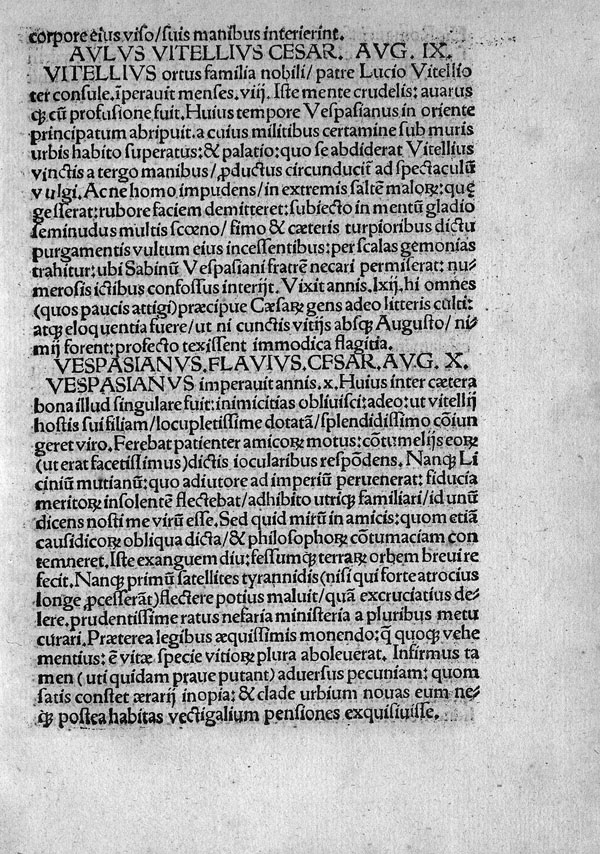 corpore eius viso/suis manibus interierint.
AVLVS VITELLIVS CESAR. AVG. IX.
VITELLIVS ortus familia nobili/ patre Lucio Vitellio
ter consule.īperauit menses.viij. Iſte mente crudelis: auarus
qꝫ cū profusione fuit. Huius tempore Vespasianus in oriente
principatum abripuit.a cuius militibus certamine sub muris
urbis habito superatus:& palatio:quo se abdiderat Vitellius
vinctis a tergo manibus/ꝓductus circunducit̄ ad spectaculū
vulgi. Ac ne homo impudens/in extremis saltē maloꝝ:quę
gesserat:rubore faciem demitteret:subiecto in mentū gladio
seminudus multis scœno/ fimo & cæteris turpioribus dictu
purgamentis vultum eius incessentibus:per scalas gemonias
trahitur:ubi Sabinū Vespasiani fratrē necari permiserat: nu⸗
merosis ictibus confossus interijt. Vixit annis.lxij.hi omnes
(quos paucis attigi)præcipue Cæsaꝝ gens adeo litteris culti:
atqꝫ eloquentia fuere/ut ni cunctis vitijs absqꝫ Augusto/ ni⸗
mij forent:profecto texissent immodica flagitia.
VESPASIANVS.FLAVIVS.CESAR.AVG. X.
VESPASIANVS imperauit annis.x.Huius inter cætera
bona illud singulare fuit:inimicitias obliuisci:adeo:ut vitellij
hostis sui filiam/locupletissime dotatā/splendidissimo cōiun
geret viro.Ferebat patienter amicoꝝ motus:cōtumelijs eoꝝ
(ut erat facetissimus)dictis iocularibus respōdens.Nanqꝫ Li
ciniū mutianū:quo adiutore ad imperiū peruenerat: fiducia
meritoꝝ insolentē flectebat/adhibito utriqꝫ familiari/id unū
dicens nosti me virū esse. Sed quid mirū in amicis:quom etiā
causidicoꝝ obliqua dicta/& philosophoꝝ cōtumaciam con
temneret.Iste exanguem diu:fessumqꝫ terraꝝ orbem breui re
fecit.Nanqꝫ primū satellites tyrannidis(nisi qui forte atrocius
longe ꝓcesserāt)flectere potius maluit/quā excruciatius de⸗
lere.prudentissime ratus nefaria ministeria a pluribus metu
curari. Præterea legibus æquissimis monendo:q̄ quoqꝫ vehe
mentius: ē vitæ specie vitioꝝ plura aboleuerat. Infirmus ta
men ( uti quidam praue putant) aduersus pecuniam: quom
satis constet ærarij inopia: & clade urbium nouas eum ne⸗
qꝫ postea habitas vectigalium pensiones exquisiuisse.